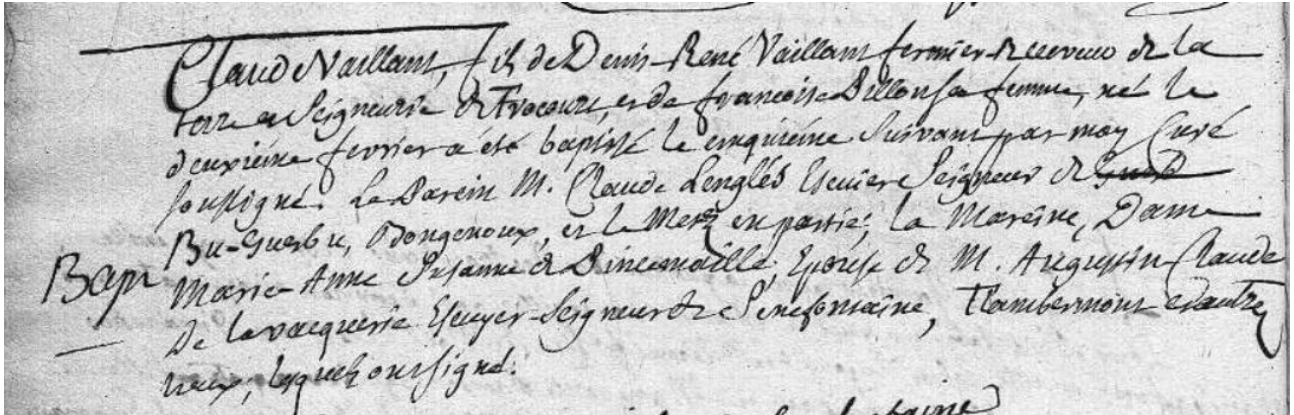 Claude Vaillant, fils de Denis-René Vaillant fermier-Receveur de la
terre et Seigneurie de Frocourt, et de françoise Billon sa femme, né le
deuxiéme fevrier a été baptisé le cinquiéme Suivant par moy Curé
soussigné. Le Parein M. Claude Lenglés Escuier Seigneur de
Bu-Guerbu, et le Metz en partie; la Mareine, Dame
Bap
Marie-Anne Susanne de Epouse de M. Augustin-Claude
De lavacquerie Escuyer-Seigneur de Senefontaine, Flambermont et autres
lieux; lesquels ont signé.